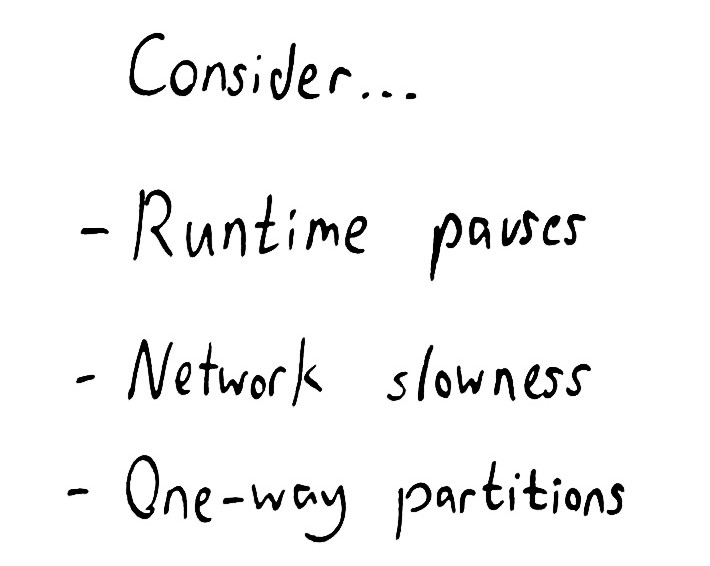 Consider...
- Runtime pauses
- Network slowness
- One-way partitions